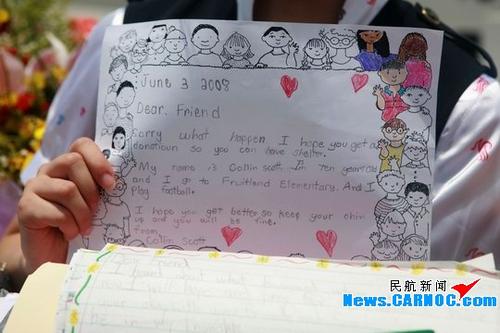 June 3 2008
Dear. Friend
Sorry what happen I hope you get a
donatioun so you can have shelter.
My name is Collin scott Im ten years old
and I go to Fruitland Elementary. And I
Play football.
I hope you get better so keep your chin
up and you will be fine.
From,
Collin Scott
民航新闻
News.CARNOC.com